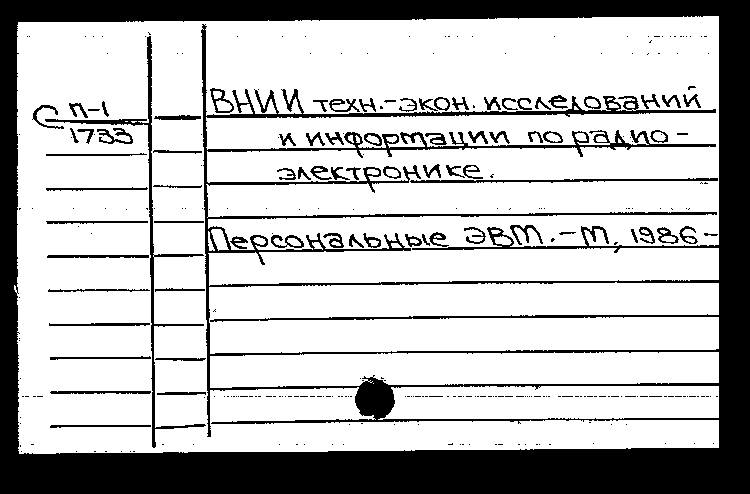 С П-1
1733
ВНИИ техн.-экон. исследований
и информации по радио-
электронике.
Персональные ЭВМ.-М., 1986-